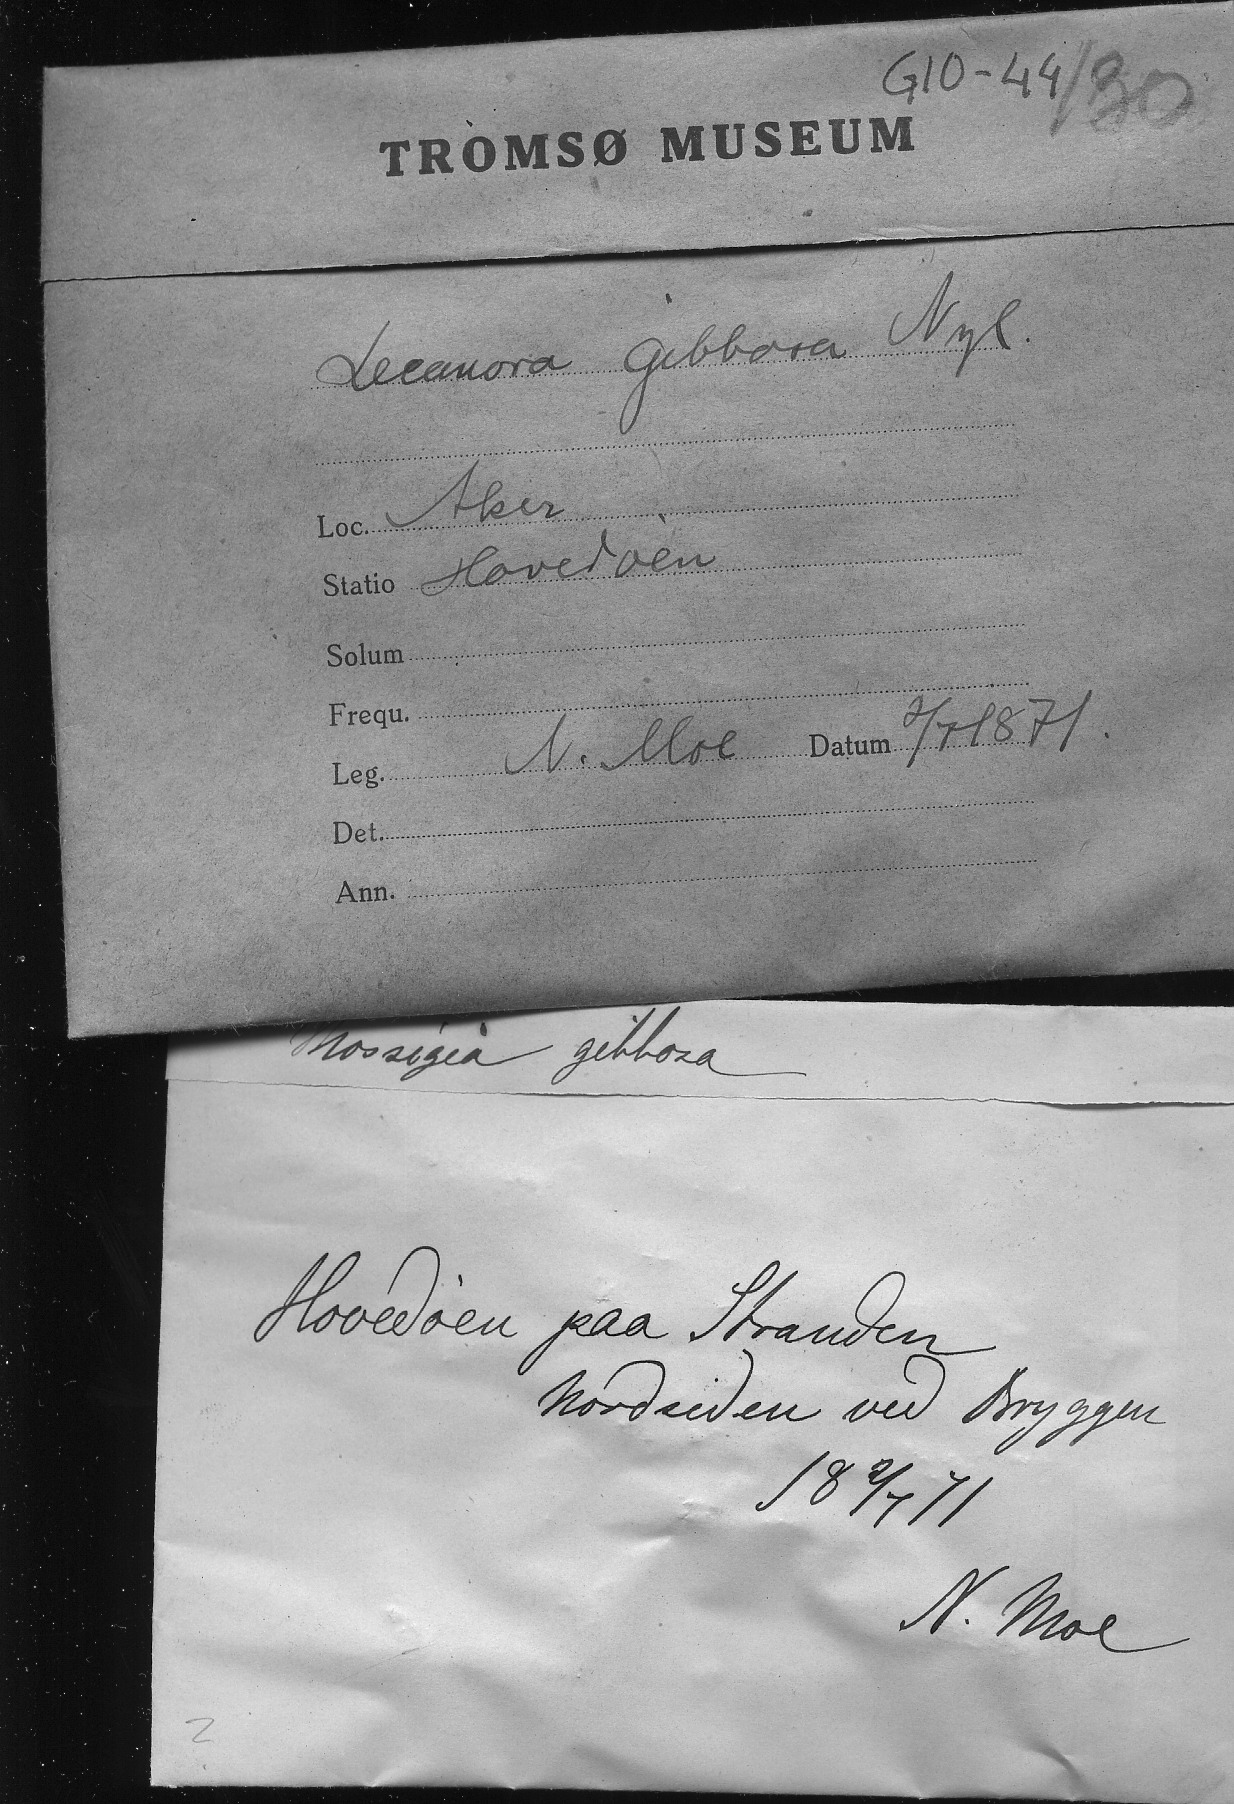 G10-44/30
TROMSØ MUSEUM
Lecanora gibbosa Nyl.
Loc. Aker
Statio Hovedöen
Solum
Frequ.
Leg. N. Moe Datum 2/7 1871.
Det.
Ann.
Mossigia gibbosa
Hovedöen paa Stranden
Nordsiden ved Bryggen
18 2/7 71
N. Moe
2